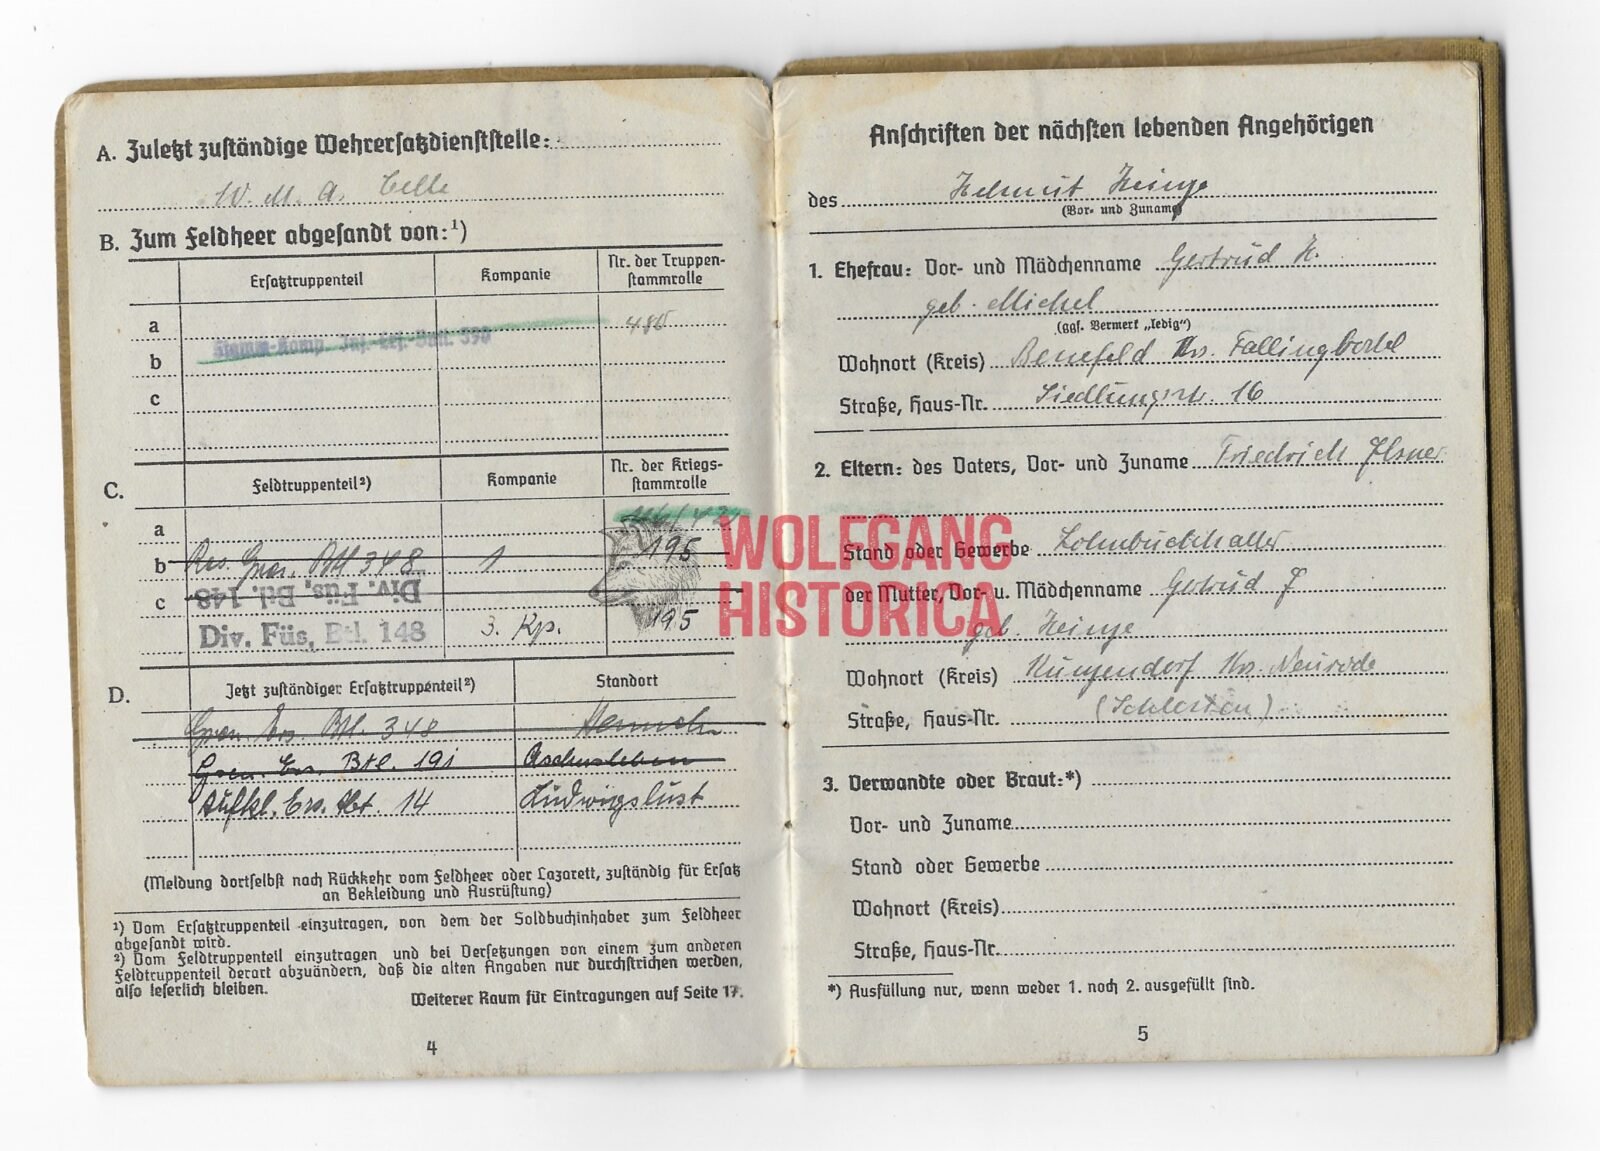 A. Zuletzt zuständige Wehrersatzdienststelle:
W. M. A. Celle
B. Zum Feldheer abgesandt von:¹)
Ersatztruppenteil
Kompanie
Nr. der Truppen-
stammrolle
a
b
Stamm-Komp. Inf.-Ers.-Batl. 590
c
C.
Feldtruppenteil²)
Kompanie
Nr. der Kriegs-
stammrolle
a
b Res. Gren. Btl 348 1 195
c Div. Füs. Btl. 148
Div. Füs. Btl. 148 3. Kp. 195
D.
Jetzt zuständiger Ersatztruppenteil²)
Standort
Gren. Ers. Btl. 348
Gren. Ers. Btl. 191 Aschersleben
Aufkl. Ers. Abt. 14 Ludwigslust
(Meldung dortselbst nach Rückkehr vom Feldheer oder Lazarett, zuständig für Ersatz
an Bekleidung und Ausrüstung)
¹) Vom Ersatztruppenteil einzutragen, von dem der Soldbuchinhaber zum Feldheer
abgesandt wird.
²) Vom Feldtruppenteil einzutragen und bei Versetzungen von einem zum anderen
Feldtruppenteil derart abzuändern, daß die alten Angaben nur durchstrichen werden,
also leserlich bleiben.
Weiterer Raum für Eintragungen auf Seite 17.
4
Anschriften der nächsten lebenden Angehörigen
des Helmut Heinze
(Vor- und Zuname)
1. Ehefrau: Vor- und Mädchenname Gertrud H.
geb. Michel
(ggf. Vermerk „ledig“)
Wohnort (Kreis) Benefeld Krs. Fallingbostel
Straße, Haus-Nr. Siedlungsstr. 16
2. Eltern: des Vaters, Vor- und Zuname Friedrich
Stand oder Gewerbe Lohnbuchhalter
der Mutter, Vor- u. Mädchenname Gertrud
geb. Heinze
Wohnort (Kreis) Kunzendorf Krs. Neurode
Straße, Haus-Nr. (Schlesien)
3. Verwandte oder Braut:*)
Vor- und Zuname
Stand oder Gewerbe
Wohnort (Kreis)
Straße, Haus-Nr.
*) Ausfüllung nur, wenn weder 1. noch 2. ausgefüllt sind.
5
WOLFGANG
HISTORICA